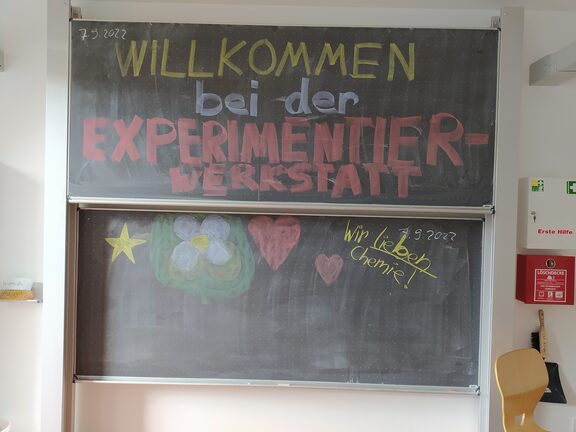 7.9.2022
WILLKOMMEN
bei der
EXPERIMENTIER-
WERKSTATT
Wir lieben
Chemie!
7.9.2022
Erste Hilfe
LÖSCHDECKE